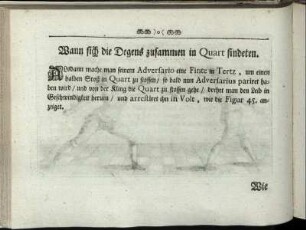 Wann sich die Degens zusammen in Quart findeten.
Alsdann mache man seinem Adversario eine Finte in Tertz, um einen
halben Stoß in Quart zu stossen/ so bald nun Adversarius pariret ha-
ben wird/ und von der Kling die Quart zu stossen gehe/ drehet man den Leib in
Geschwindigkeit herum/ und arrestiret ihn in Volt, wie die Figur 45. an-
zeiget.
Wie